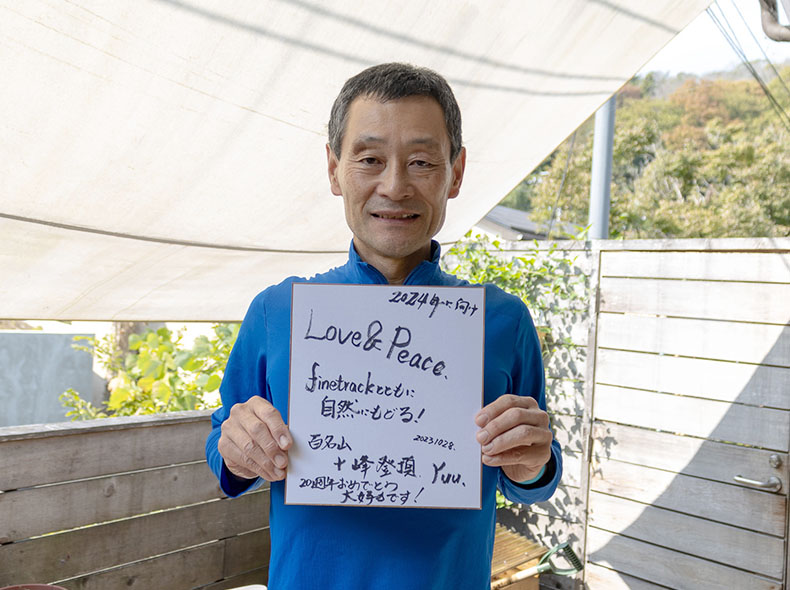 2024年に向け
Love&Peace.
finetrackとともに
自然にもどる!
20231028.
百名山
十峰登頂.
Yuu.
20周年おめでとう
大好きです!